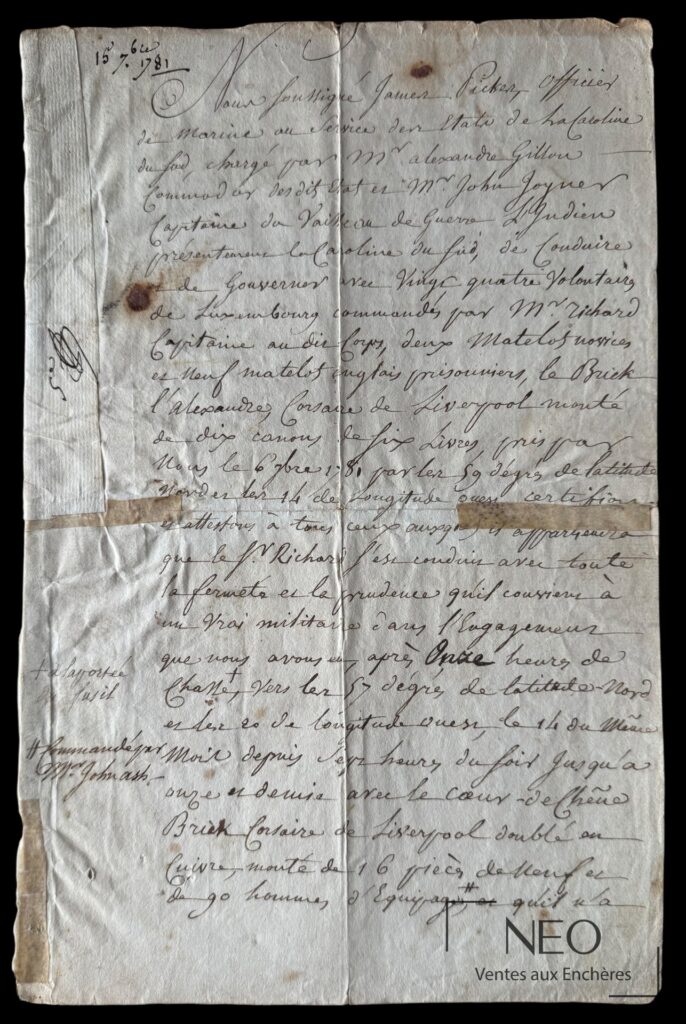 15 7.bre 1781
Nous soussigné James Pickes, officier
de Marine au Service des Etats de La Caroline
du Sud, chargé par Mr alexandre Gillon
Commodor desdit Etat et Mr John Joyner
Capitaine du Vaisseau de Guerre L'Indien
présentement la Caroline du Sud, de Conduire
et de Gouverner avec Vingt quatre Volontaires
de Luxembourg commandés par Mr richard
Capitaine au dit Corps, deux Matelots novices
et Neuf matelots anglais prisonniers, le Brick
l'Alexandre, Corsaire de Liverpool monté
de dix canons de six Livres pris par
Nous le 6 7bre 1781 par les 59 dégrés de latitude
Nord et les 14 de longitude ouest certifions
et attestons à tous ceux auxquels il appartiendra
que le Sr Richard s'est conduit avec toute
la fermeté et la prudence qu'il convient à
un Vrai militaire dans l'Engagement
que nous avons eu après Onze heures de
Chasse + Vers les 57 dégrés de latitude Nord
et les 20 de longitude ouest, le 14 du Même
Mois depuis Sept heures du soir Jusqu'a
onze et demie avec le cœur-de-Chêne
Brick Corsaire de Liverpool doublé en
Cuivre, monté de 16 pièces de Neuf et
de 90 hommes d'Equipage # et qu'il n'a
5e
+ a la portée
de fusil
# Commandé par
Mr John ash
NEO
Ventes aux Enchères